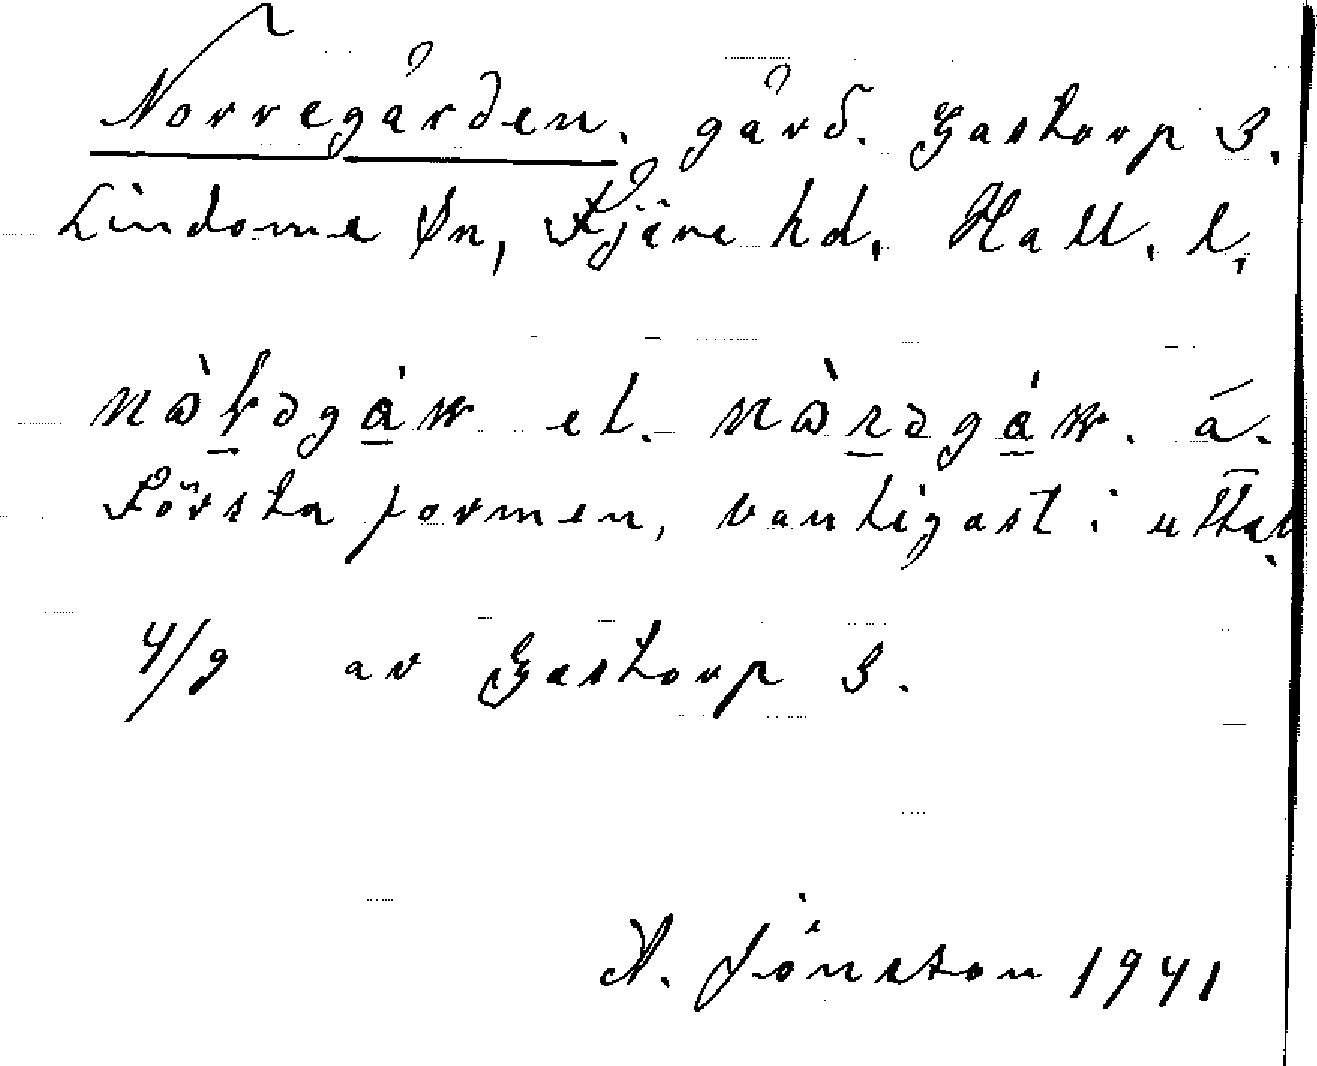 Norregården. gård. Gastorp 3.
Lindome sn, Fjäre hd. Hall. l.
el. á.
Första formen, vanligast i uttal
4/9 av Gastorp 3.
A. Jönsson 1941